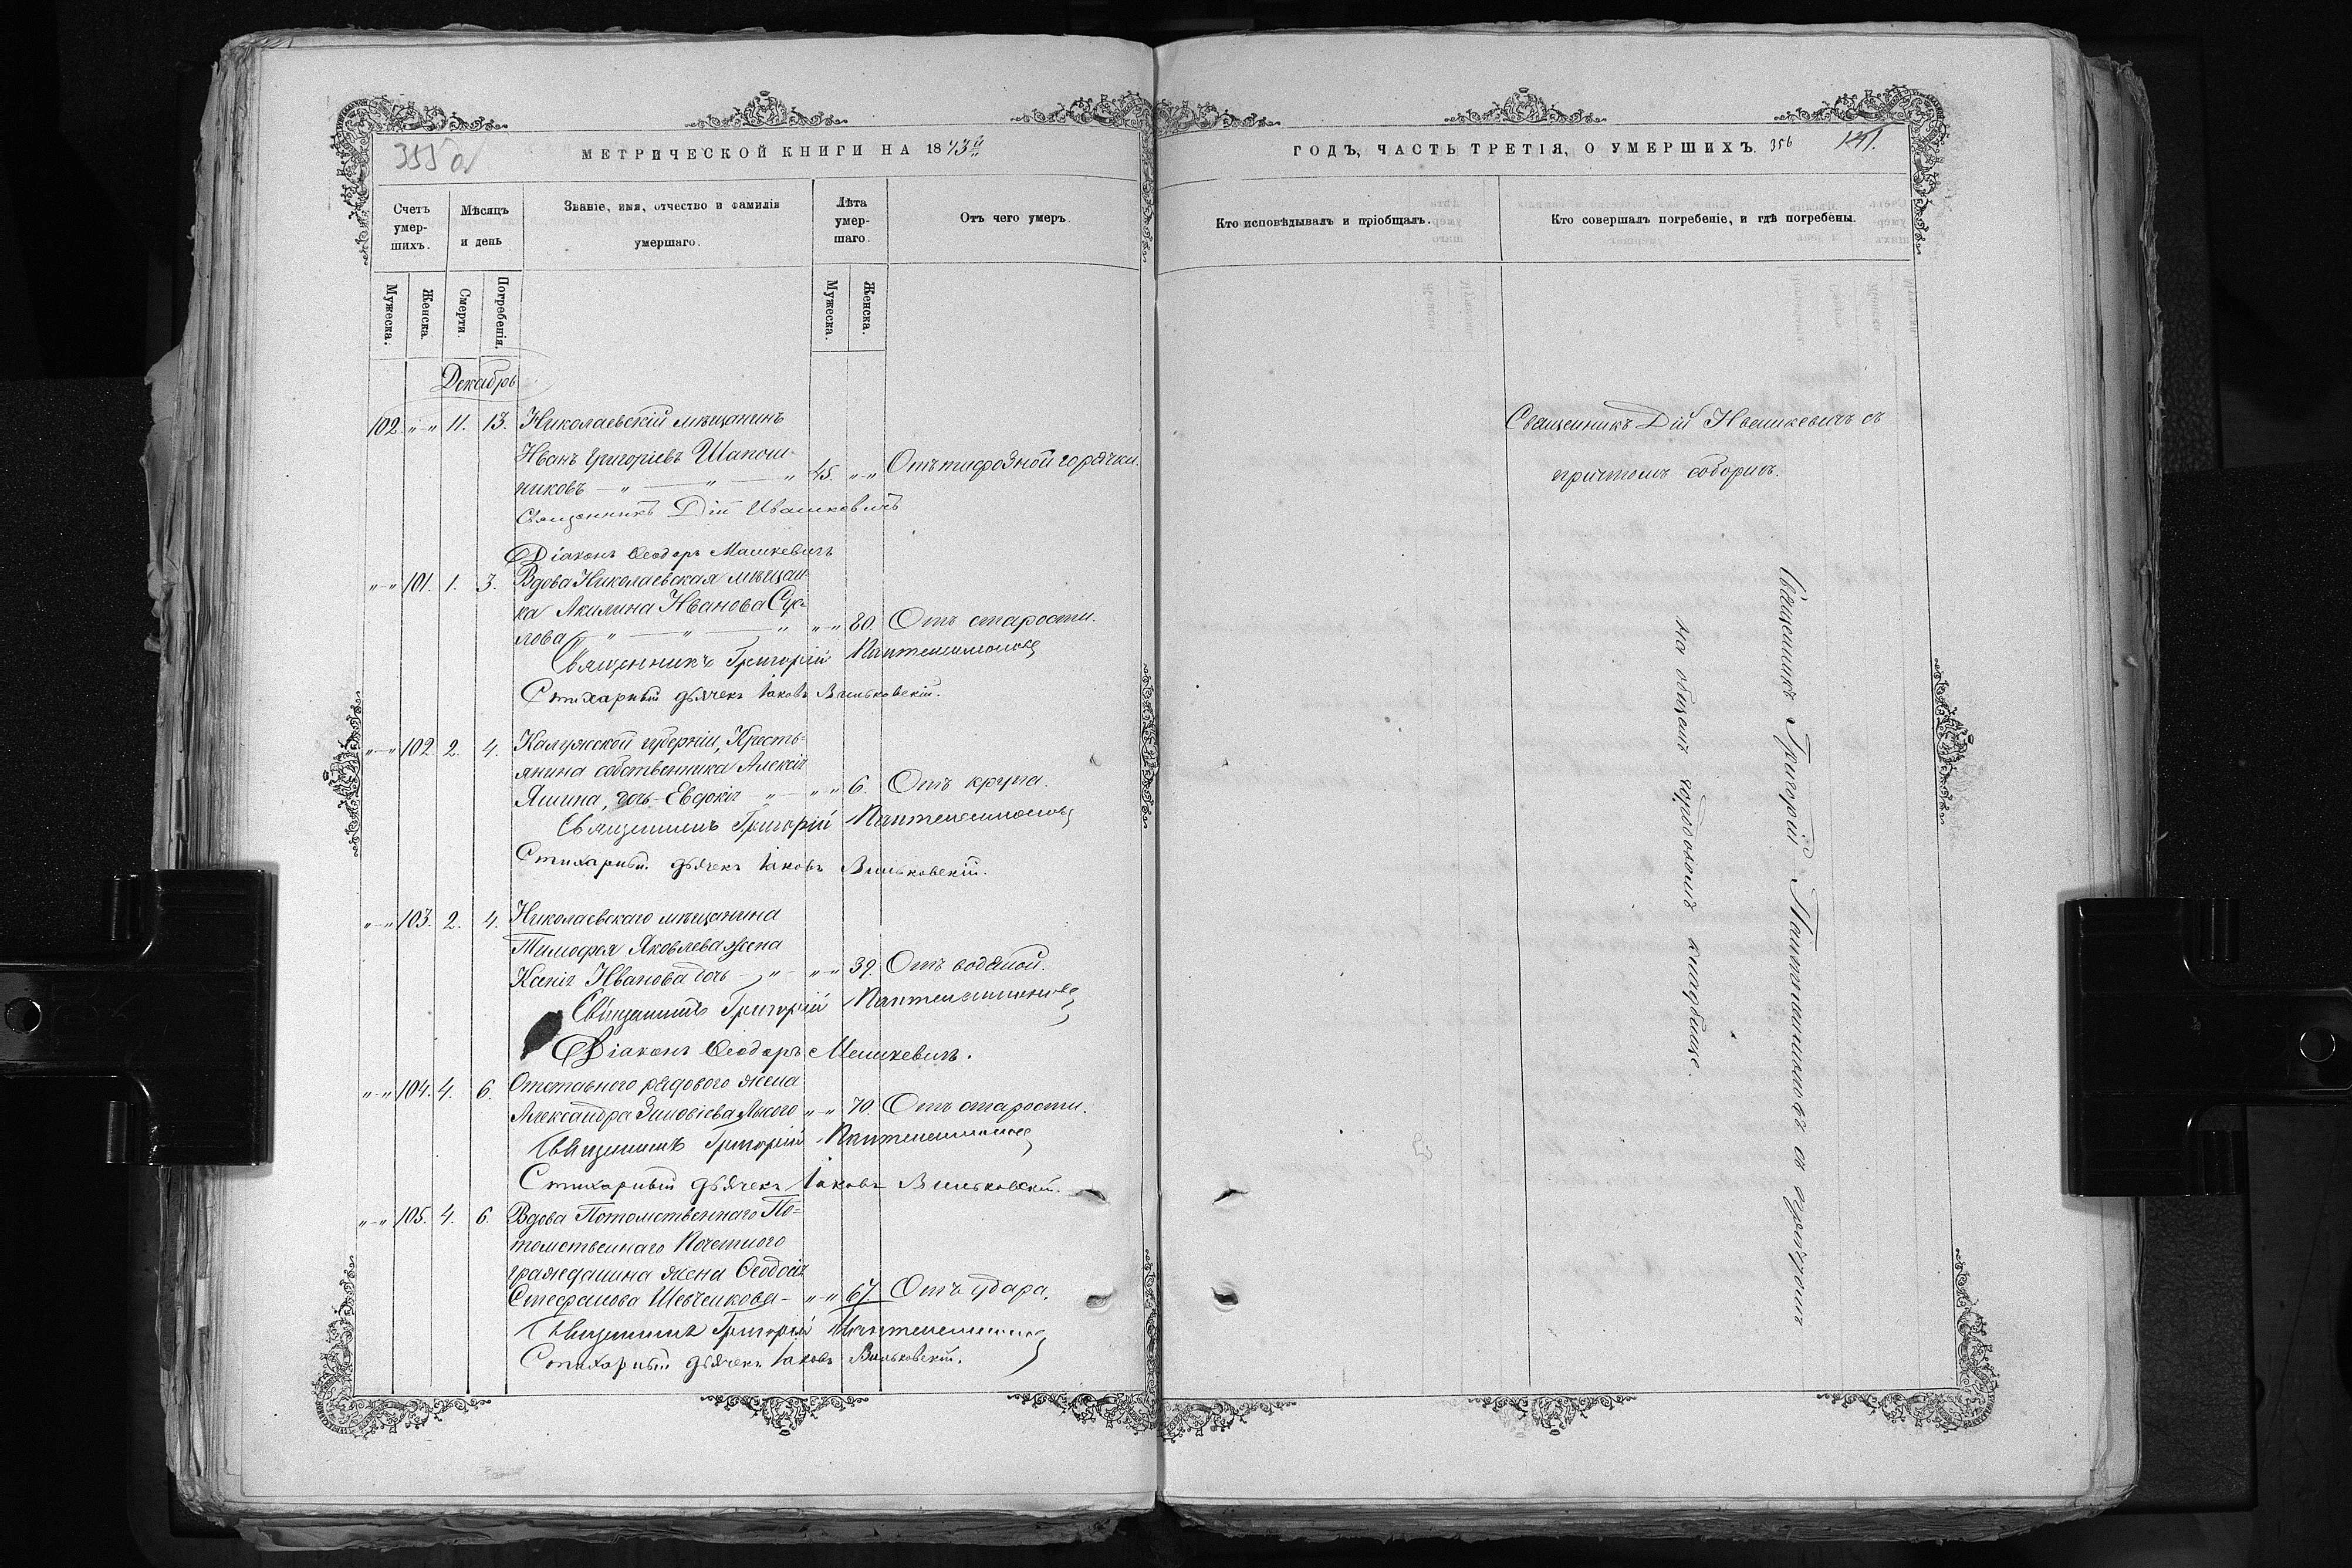 355 об
МЕТРИЧЕСКОЙ КНИГИ НА 1873й
Счетъ умер-шихъ.
Мѣсяцъ и день
Званіе, имя, отчество и фамилія умершаго.
Лѣта умер-шаго.
Отъ чего умеръ.
Мужеска.
Женска.
Смерти.
Погребенія.
Мужеска.
Женска.
Декабрь
102. "-" 11. 13. Николаевскій мѣщанинъ
Иванъ Григоріевъ Шапош-
никовъ — " — " — " 45. "-" Отъ тифозной горячки.
Священникъ Дій Ивашкевичъ
Діаконъ Ѳеодоръ Машкевичъ
"-" 101. 1. 3. Вдова Николаевская мѣщан-
ка Акилина Иванова Сус-
лова — " — " — " "-" 80. Отъ старости.
Священникъ Григорій Пантелеимоновъ
Стихарный дьячекъ Іаковъ Виньковскій.
"-" 102. 2. 4. Калужской губерніи, Кресть-
янина собственника Алексія
Яшина, дочь Евдокія — " — "-" 6. Отъ крупа.
Священникъ Григорій Пантелеимоновъ
Стихарный дьячекъ Іаковъ Виньковскій.
"-" 103. 2. 4. Николаевскаго мѣщанина
Тимофея Яковлева жена
Ксенія Иванова дочь — " — "-" 39. Отъ водяной.
Священникъ Григорій Пантелеимоновъ
Діаконъ Ѳеодоръ Машкевичъ.
"-" 104. 4. 6. Отставного рядового жена
Александра Зиновіева Лысого "-" 70. Отъ старости.
Священникъ Григорій Пантелеимоновъ
Стихарный дьячекъ Іаковъ Виньковскій.
"-" 105. 4. 6. Вдова Потомственнаго По-
томственнаго Почетного
гражданина жена Ѳеодосія
Стефанова Шевченкова — "-" 67. Отъ удара.
Священникъ Григорій Пантелеимоновъ
Стихарный дьячекъ Іаковъ Виньковскій.
ГОДЪ, ЧАСТЬ ТРЕТІЯ, О УМЕРШИХЪ.
356
141.
Кто исповѣдывалъ и пріобщалъ.
Кто совершалъ погребеніе, и гдѣ погребены.
Священникъ Дій Ивашкевичъ съ
причтомъ соборнѣ.
Священникъ Григорій Пантелеимоновъ съ причтомъ
на общемъ городовомъ кладбище.